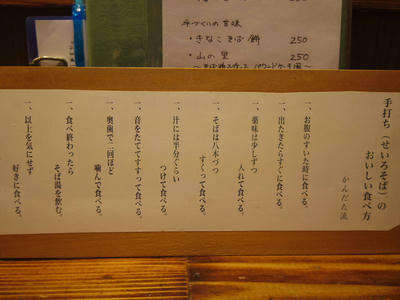 手づくりの甘味
・きなこそば餅 250
・山の里 250
手打ち(せいろそば)の
おいしい食べ方
かんだた流
一、お腹のすいた時に食べる。
一、出たきたらすぐに食べる。
一、薬味は少しずつ
入れて食べる。
一、そばは八本づつ
すくって食べる。
一、汁には半分ぐらい
つけて食べる。
一、音をたててすすって食べる。
一、奥歯で二回ほど
噛んで食べる。
一、食べ終わったら
そば湯を飲む。
一、以上を気にせず
好きに食べる。